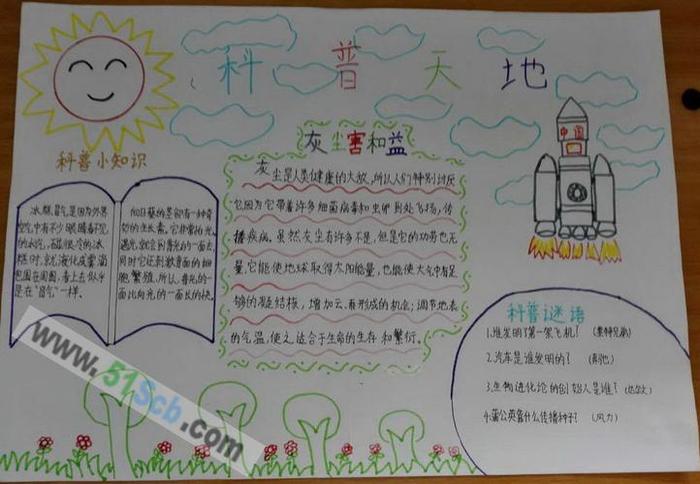 科普天地
科普小知识
冰糕冒气是因为外界
空气中有不少眼睛看不见
的水汽,碰很冷的冰
糕时,就液化成雾滴
包围在周围,看上去似乎
是在"冒气"一样。
向日葵的茎部有一种奇
妙的生长素。它非常怕光。
遇光,就会到背光的一面去,
同时它还刺激背面的细
胞繁殖,所以,背光的一
面比向光的一面长的快。
灰尘害和益
灰尘是人类健康的大敌,所以人们特别讨厌
它因为它带着许多细菌病毒和虫卵到处飞扬,传
播疾病。虽然灰尘有许多不是,但是它的功劳也无
量,它能使地球取得太阳能量,也能使大气中有足
够的凝结核,增加云、雨形成的机会;调节地表
的气温,使之适合于生命的生存和繁衍。
中国
科普谜语
1.谁发明了第一架飞机?(莱特兄弟)
2.汽车是谁发明的?
3.生物进化论的创始人是谁?(达尔文)
4.蒲公英靠什么传播种子?(风力)
www.51Scb.com